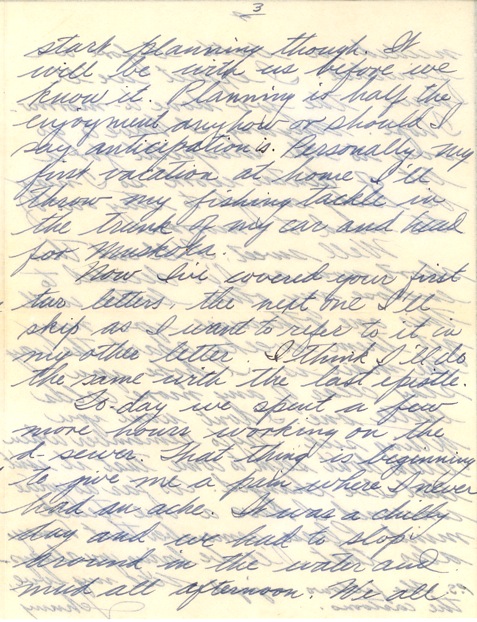 3
start planning though. It
will be with us before we
know it. Planning is half the
enjoyment anyhow or should I
say anticipation is. Personally, my
first vacation at home I'll
throw my fishing tackle in
the trunk of my car and head
for Muskoka.
Now I've covered your first
two letters, the next one I'll
skip as I want to refer to it in
my other letter. I think I'll do
the same with the last epistle.
To-day we spent a few
more hours working on the
d- sewer. That thing is beginning
to give me a pain where I never
had an ache. It was a chilly
day and we had to slop
around in the water and
mud all afternoon. We all